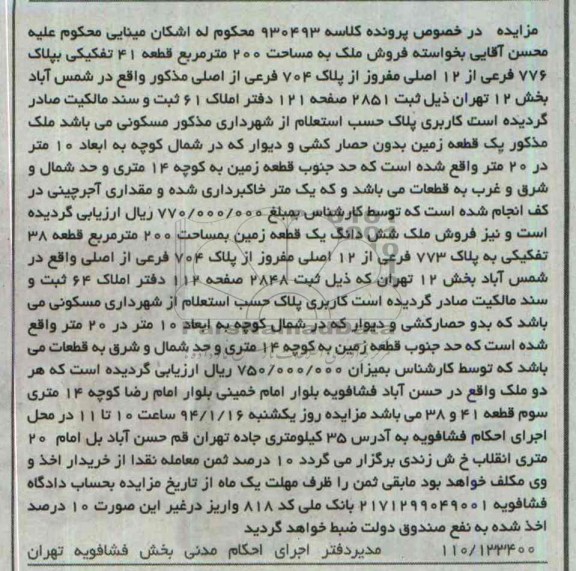 مزایده   در خصوص پرونده کلاسه ۹۳۰۴۹۳ محکوم له اشکان مینایی محکوم علیه
محسن آقایی بخواسته فروش ملک به مساحت ۲۰۰ مترمربع قطعه ۴۱ تفکیکی بپلاک
۷۷۶ فرعی از ۱۲ اصلی مفروز از پلاک ۷۰۴ فرعی از اصلی مذکور واقع در شمس آباد
بخش ۱۲ تهران ذیل ثبت ۲۸۵۱ صفحه ۱۲۱ دفتر املاک ۶۱ ثبت و سند مالکیت صادر
گردیده است کاربری پلاک حسب استعلام از شهرداری مذکور مسکونی می باشد ملک
مذکور یک قطعه زمین بدون حصار کشی و دیوار که در شمال کوچه به ابعاد ۱۰ متر
در ۲۰ متر واقع شده است که حد جنوب قطعه زمین به کوچه ۱۴ متری و حد شمال و
شرق و غرب به قطعات می باشد و که یک متر خاکبرداری شده و مقداری آجرچینی در
کف انجام شده است که توسط کارشناس بمبلغ ۷۷۰/۰۰۰/۰۰۰ ریال ارزیابی گردیده
است و نیز فروش ملک شش دانگ یک قطعه زمین بمساحت ۲۰۰ مترمربع قطعه ۳۸
تفکیکی به پلاک ۷۷۳ فرعی از ۱۲ اصلی مفروز از پلاک ۷۰۴ فرعی از اصلی واقع در
شمس آباد بخش ۱۲ تهران که ذیل ثبت ۲۸۴۸ صفحه ۱۱۲ دفتر املاک ۶۴ ثبت و
سند مالکیت صادر گردیده است کاربری پلاک حسب استعلام از شهرداری مسکونی می
باشد که بدو حصارکشی و دیوار که در شمال کوچه به ابعاد ۱۰ متر در ۲۰ متر واقع
شده است که حد جنوب قطعه زمین به کوچه ۱۴ متری و حد شمال و شرق به قطعات می
باشد که توسط کارشناس بمیزان ۷۵۰/۰۰۰/۰۰۰ ریال ارزیابی گردیده است که هر
دو ملک واقع در حسن آباد فشافویه بلوار امام خمینی بلوار امام رضا کوچه ۱۴ متری
سوم قطعه ۴۱ و ۳۸ می باشد مزایده روز یکشنبه ۹۴/۱/۱۶ ساعت ۱۰ تا ۱۱ در محل
اجرای احکام فشافویه به آدرس ۳۵ کیلومتری جاده تهران قم حسن آباد بل امام  ۲۰
متری انقلاب خ ش زندی برگزار می گردد ۱۰ درصد ثمن معامله نقدا از خریدار اخذ و
وی مکلف خواهد بود مابقی ثمن را ظرف مهلت یک ماه از تاریخ مزایده بحساب دادگاه
فشافویه ۲۱۷۱۲۹۹۰۴۹۰۰۱ بانک ملی کد ۸۱۸ واریز درغیر این صورت ۱۰ درصد
اخذ شده به نفع صندوق دولت ضبط خواهد گردید
۱۱۰/۱۲۳۴۰۰   مدیردفتر اجرای احکام مدنی بخش فشافویه تهران